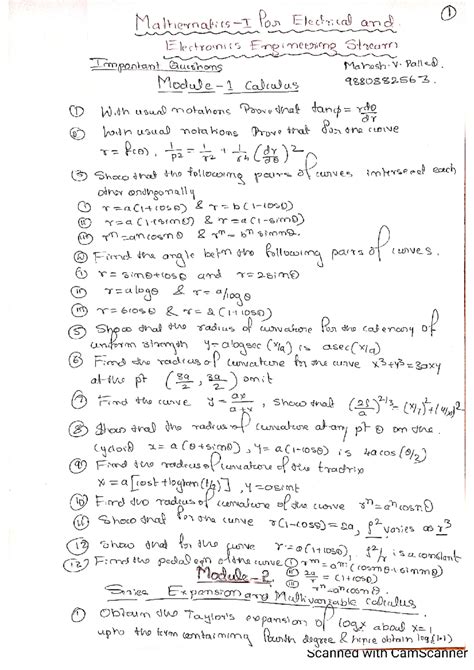 ①
Mathematics-I For Electrical and
Electronics Engineering Stream
Important Questions Mahesh.V.
9880882563.
Module-1 Calculus
① With usual notations Prove that tanφ = r dθ/dr
② With usual notations Prove that for the curve
r = f(θ), 1/p² = 1/r² + 1/r⁴ (dr/dθ)²
③ Show that the following pairs of curves intersect each
other orthogonally
ⓘ r = a(1+cosθ) & r = b(1-cosθ)
ⓘⓘ r = a(1+sinθ) & r = a(1-sinθ)
ⓘⓘⓘ rⁿ = aⁿcosnθ & rⁿ = bⁿ sinnθ.
④ Find the angle betn the following pairs of curves.
ⓘ r = sinθ+cosθ and r = 2sinθ
ⓘⓘ r = alogθ & r = a/logθ
ⓘⓘⓘ r = 6cosθ & r = 2(1+cosθ)
⑤ Show that the radius of curvature for the catenary of
uniform strength y = a log sec (x/a) is a sec(x/a)
⑥ Find the radius of curvature for the curve x³+y³=3axy
at the pt (3a/2, 3a/2) on it
⑦ Find the curve y = ax/a+x, show that (2ρ/a)^2/3 = (x/y)² + (y/x)²
⑧ Show that the radius of curvature at any pt θ on the
cycloid x = a(θ+sinθ), y = a(1-cosθ) is 4a cos(θ/2)
⑨ Find the radius of curvature of the tractrix
x = a[cost+logtan(t/2)], y = asint
⑩ Find the radius of curvature of the curve rⁿ = aⁿcosnθ
⑪ Show that for the curve r(1-cosθ)=2a, ρ² varies as r³
⑫ Show that for the curve r = a(1+cosθ), ρ²/r is a constant
⑬ Find the pedal eqn of the curve ① rᵐ = aᵐ(cosmθ+sinmθ)
ⓘⓘ 2a/r = (1+cosθ)
ⓘⓘⓘ rⁿ = aⁿcosnθ
Module-2
Series Expansion and Multivariable calculus
① Obtain the Taylor's expansion of logx about x=1
upto the term containing fourth degree & hence obtain log(1.1)
Scanned with CamScanner